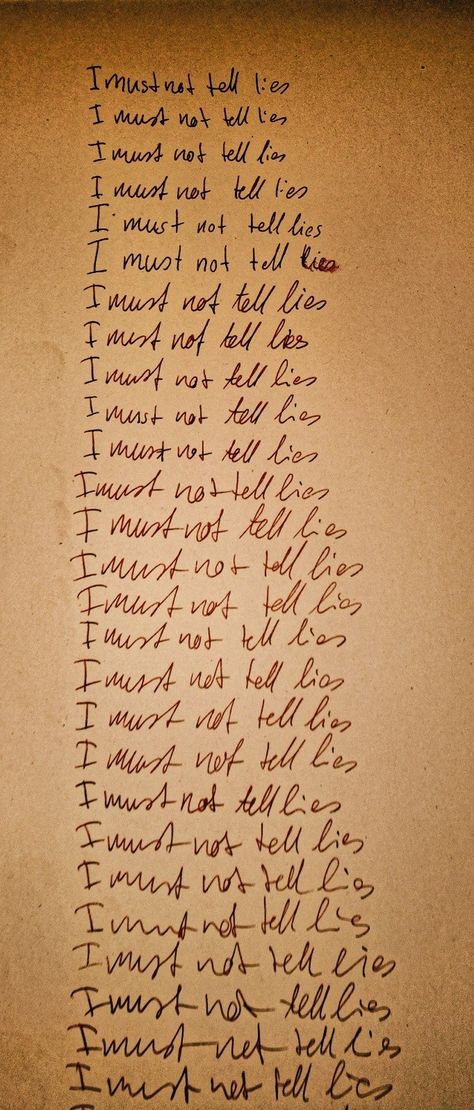 I must not tell lies
I must not tell lies
I must not tell lies
I must not tell lies
I must not tell lies
I must not tell lies
I must not tell lies
I must not tell lies
I must not tell lies
I must not tell lies
I must not tell lies
I must not tell lies
I must not tell lies
I must not tell lies
I must not tell lies
I must not tell lies
I must not tell lies
I must not tell lies
I must not tell lies
I must not tell lies
I must not tell lies
I must not tell lies
I must not tell lies
I must not tell lies
I must not tell lies
I must not tell lies
I must not tell lies